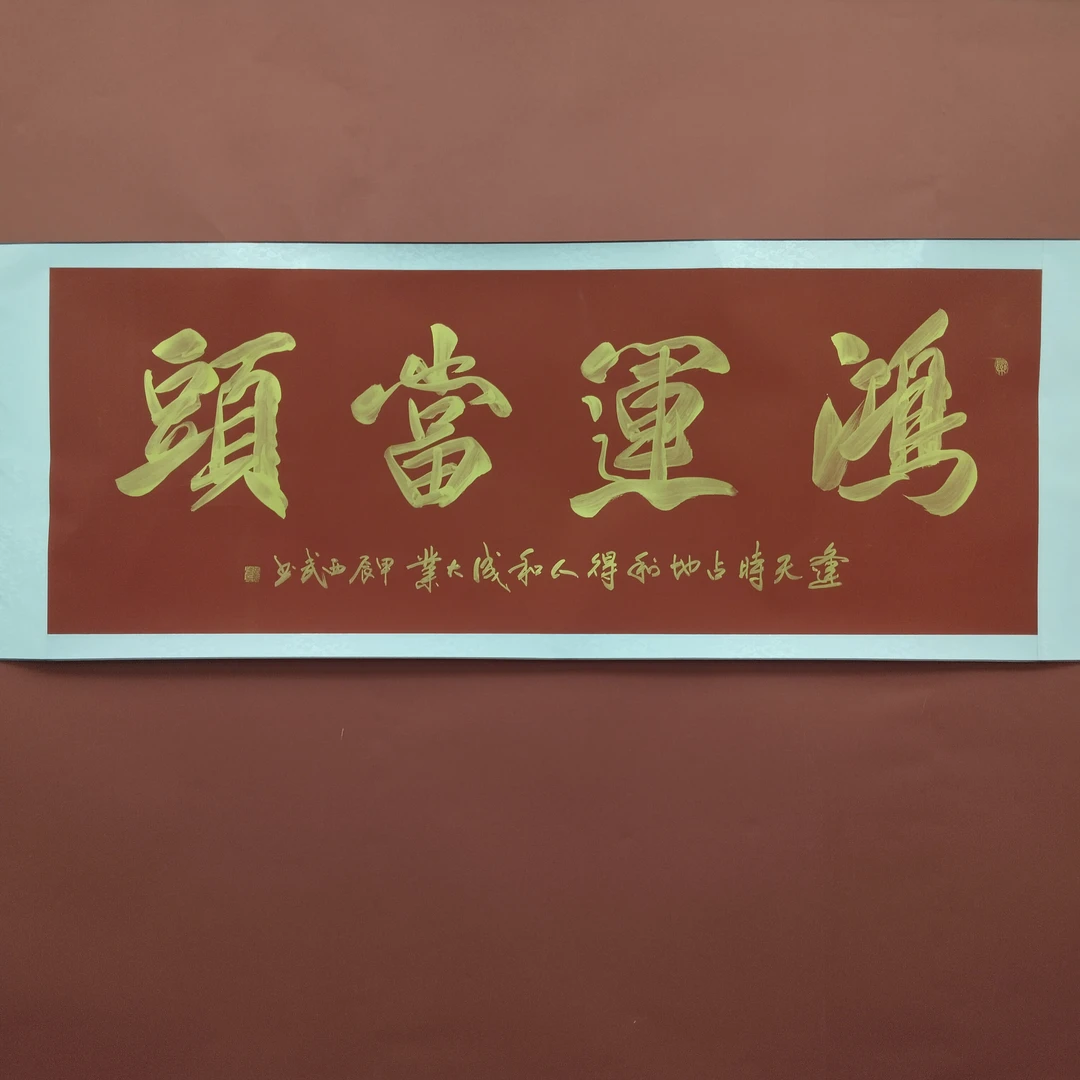 鴻運當頭
逢天時占地利得人和成大業甲辰西武书